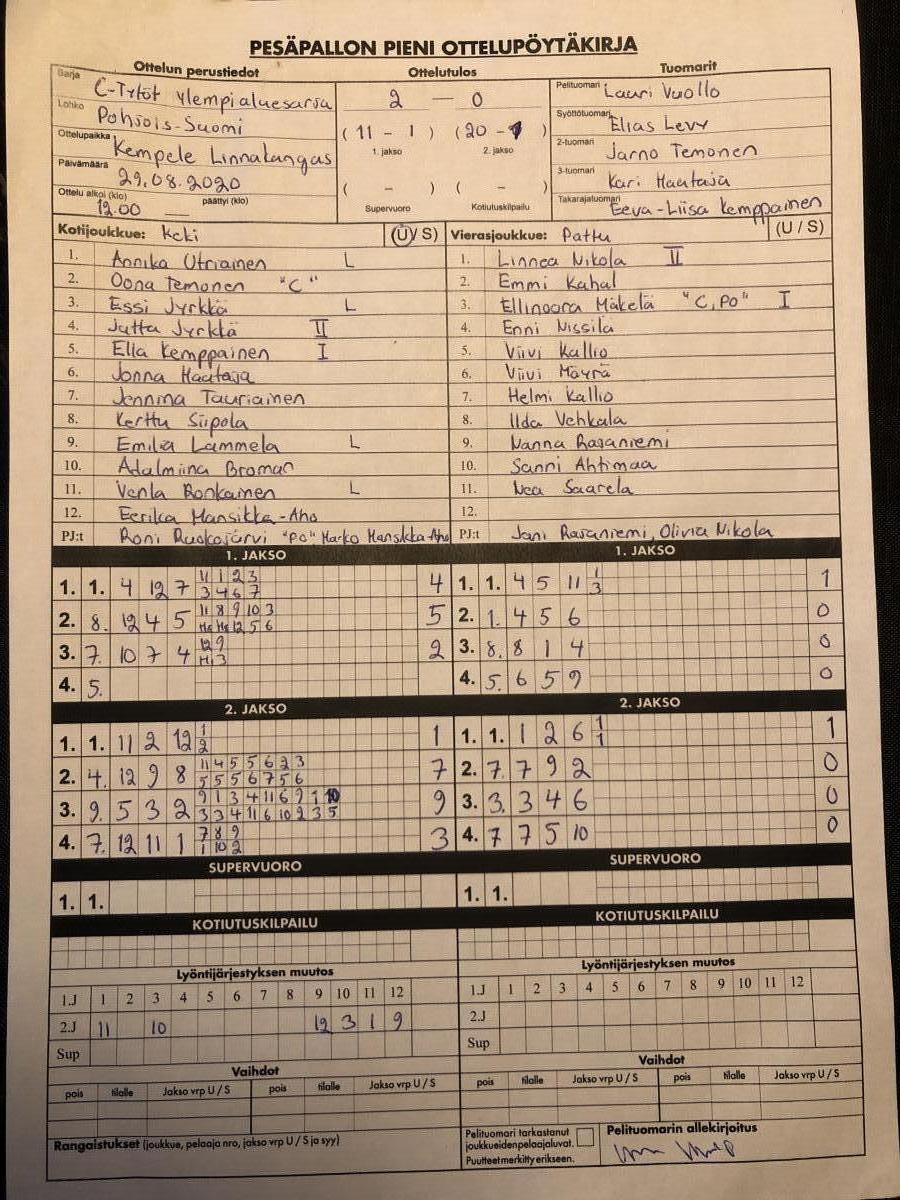 PESÄPALLON PIENI OTTELUPÖYTÄKIRJA
Ottelun perustiedot Ottelutulos Tuomarit
Sarja C-Tytöt ylempialuesarja
Lohko Pohjois-Suomi
Ottelupaikka Kempele Linnakangas
Päivämäärä 29.08.2020
Ottelu alkoi (klo) päättyi (klo)
12.00
2 — 0
(11 - 1) (20 - 1)
1. jakso 2. jakso
( - ) ( - )
Supervuoro Kotiutuskilpailu
Pelituomari Lauri Vuollo
Syöttötuomari Elias Levy
2-tuomari Jarno Temonen
3-tuomari Kari Haataja
Takarajatuomari Eeva-Liisa Kemppainen
Kotijoukkue: KeKi (U/S) Vierasjoukkue: Pattu (U / S)
1. Annika Utriainen L 1. Linnea Nikola II
2. Oona Temonen "C" 2. Emmi Kahal
3. Essi Jyrkkä L 3. Ellinoora Mäkelä "C, PO" I
4. Jutta Jyrkkä II 4. Enni Nissilä
5. Ella Kemppainen I 5. Viivi Kallio
6. Jonna Haataja 6. Viivi Möyrä
7. Jennina Tauriainen 7. Helmi Kallio
8. Kerttu Siipola 8. Iida Vehkala
9. Emilia Lammela L 9. Nanna Rasaniemi
10. Adalmiina Broman 10. Sanni Ahtimaa
11. Venla Ronkainen L 11. Nea Saarela
12. Eerika Mansikka-Aho 12.
PJ:t Roni Ruskojärvi "PO" Marko Mansikka-Aho PJ:t Jani Rasaniemi, Olivia Nikola
1. JAKSO 1. JAKSO
11 1 2 3
1. 1. 4 12 7 4 1. 1. 4 5 11 1/3 1
3 4 6 7
11 8 9 10 3
2. 8. 12 4 5 5 2. 1. 4 5 6 0
Ma Ma 12 5 6
12 9
3. 7. 10 7 4 2 3. 8. 8 1 4 0
3
4. 5. 4. 5. 6 5 9 0
2. JAKSO 2. JAKSO
1. 1. 11 2 12 1/2 1 1. 1. 1 2 6 1/1 1
11 4 5 5 6 2 3
2. 4. 12 9 8 7 2. 7. 7 9 2 0
5 5 5 6 7 5 6
9 1 3 4 11 6 9 1 10
3. 9. 5 3 2 9 3. 3. 3 4 6 0
3 3 4 11 6 10 2 3 5
7 8 9
4. 7. 12 11 1 3 4. 7 7 5 10 0
1 10 2
SUPERVUORO SUPERVUORO
1. 1. 1. 1.
KOTIUTUSKILPAILU KOTIUTUSKILPAILU
Lyöntijärjestyksen muutos Lyöntijärjestyksen muutos
1.J 1 2 3 4 5 6 7 8 9 10 11 12 1.J 1 2 3 4 5 6 7 8 9 10 11 12
2.J 11 10 12 3 1 9 2.J
Sup Sup
Vaihdot Vaihdot
pois tilalle Jakso vrp U / S pois tilalle Jakso vrp U / S pois tilalle Jakso vrp U / S pois tilalle Jakso vrp U / S
Rangaistukset (joukkue, pelaaja nro, jakso vrp U / S ja syy)
Pelituomari tarkastanut
joukkueiden pelaajaluvat.
Puutteet merkitty erikseen.
Pelituomarin allekirjoitus